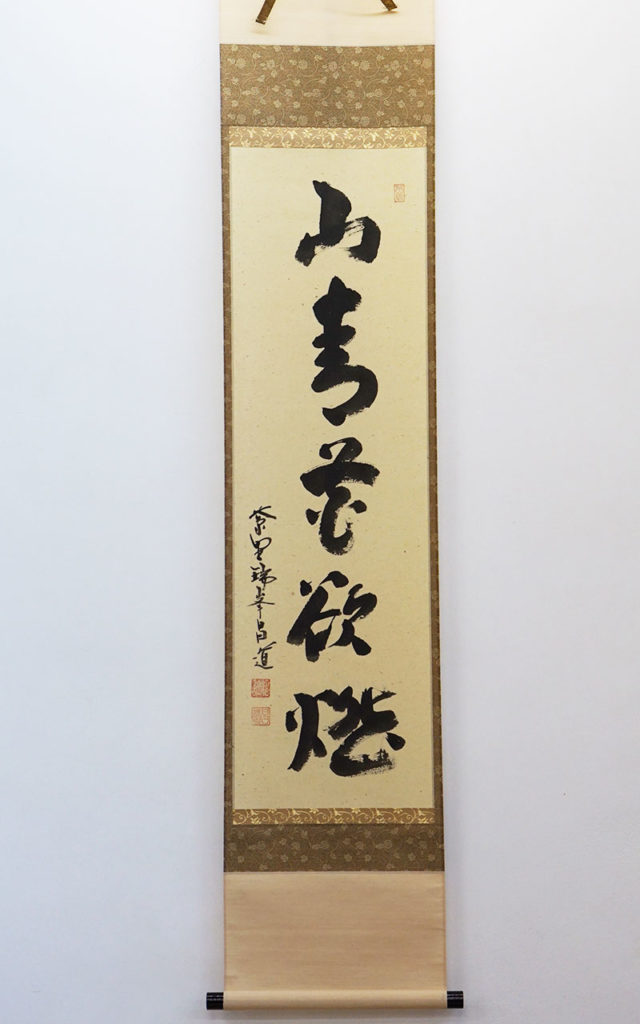 山青花欲燃
紫野瑞峯昌道